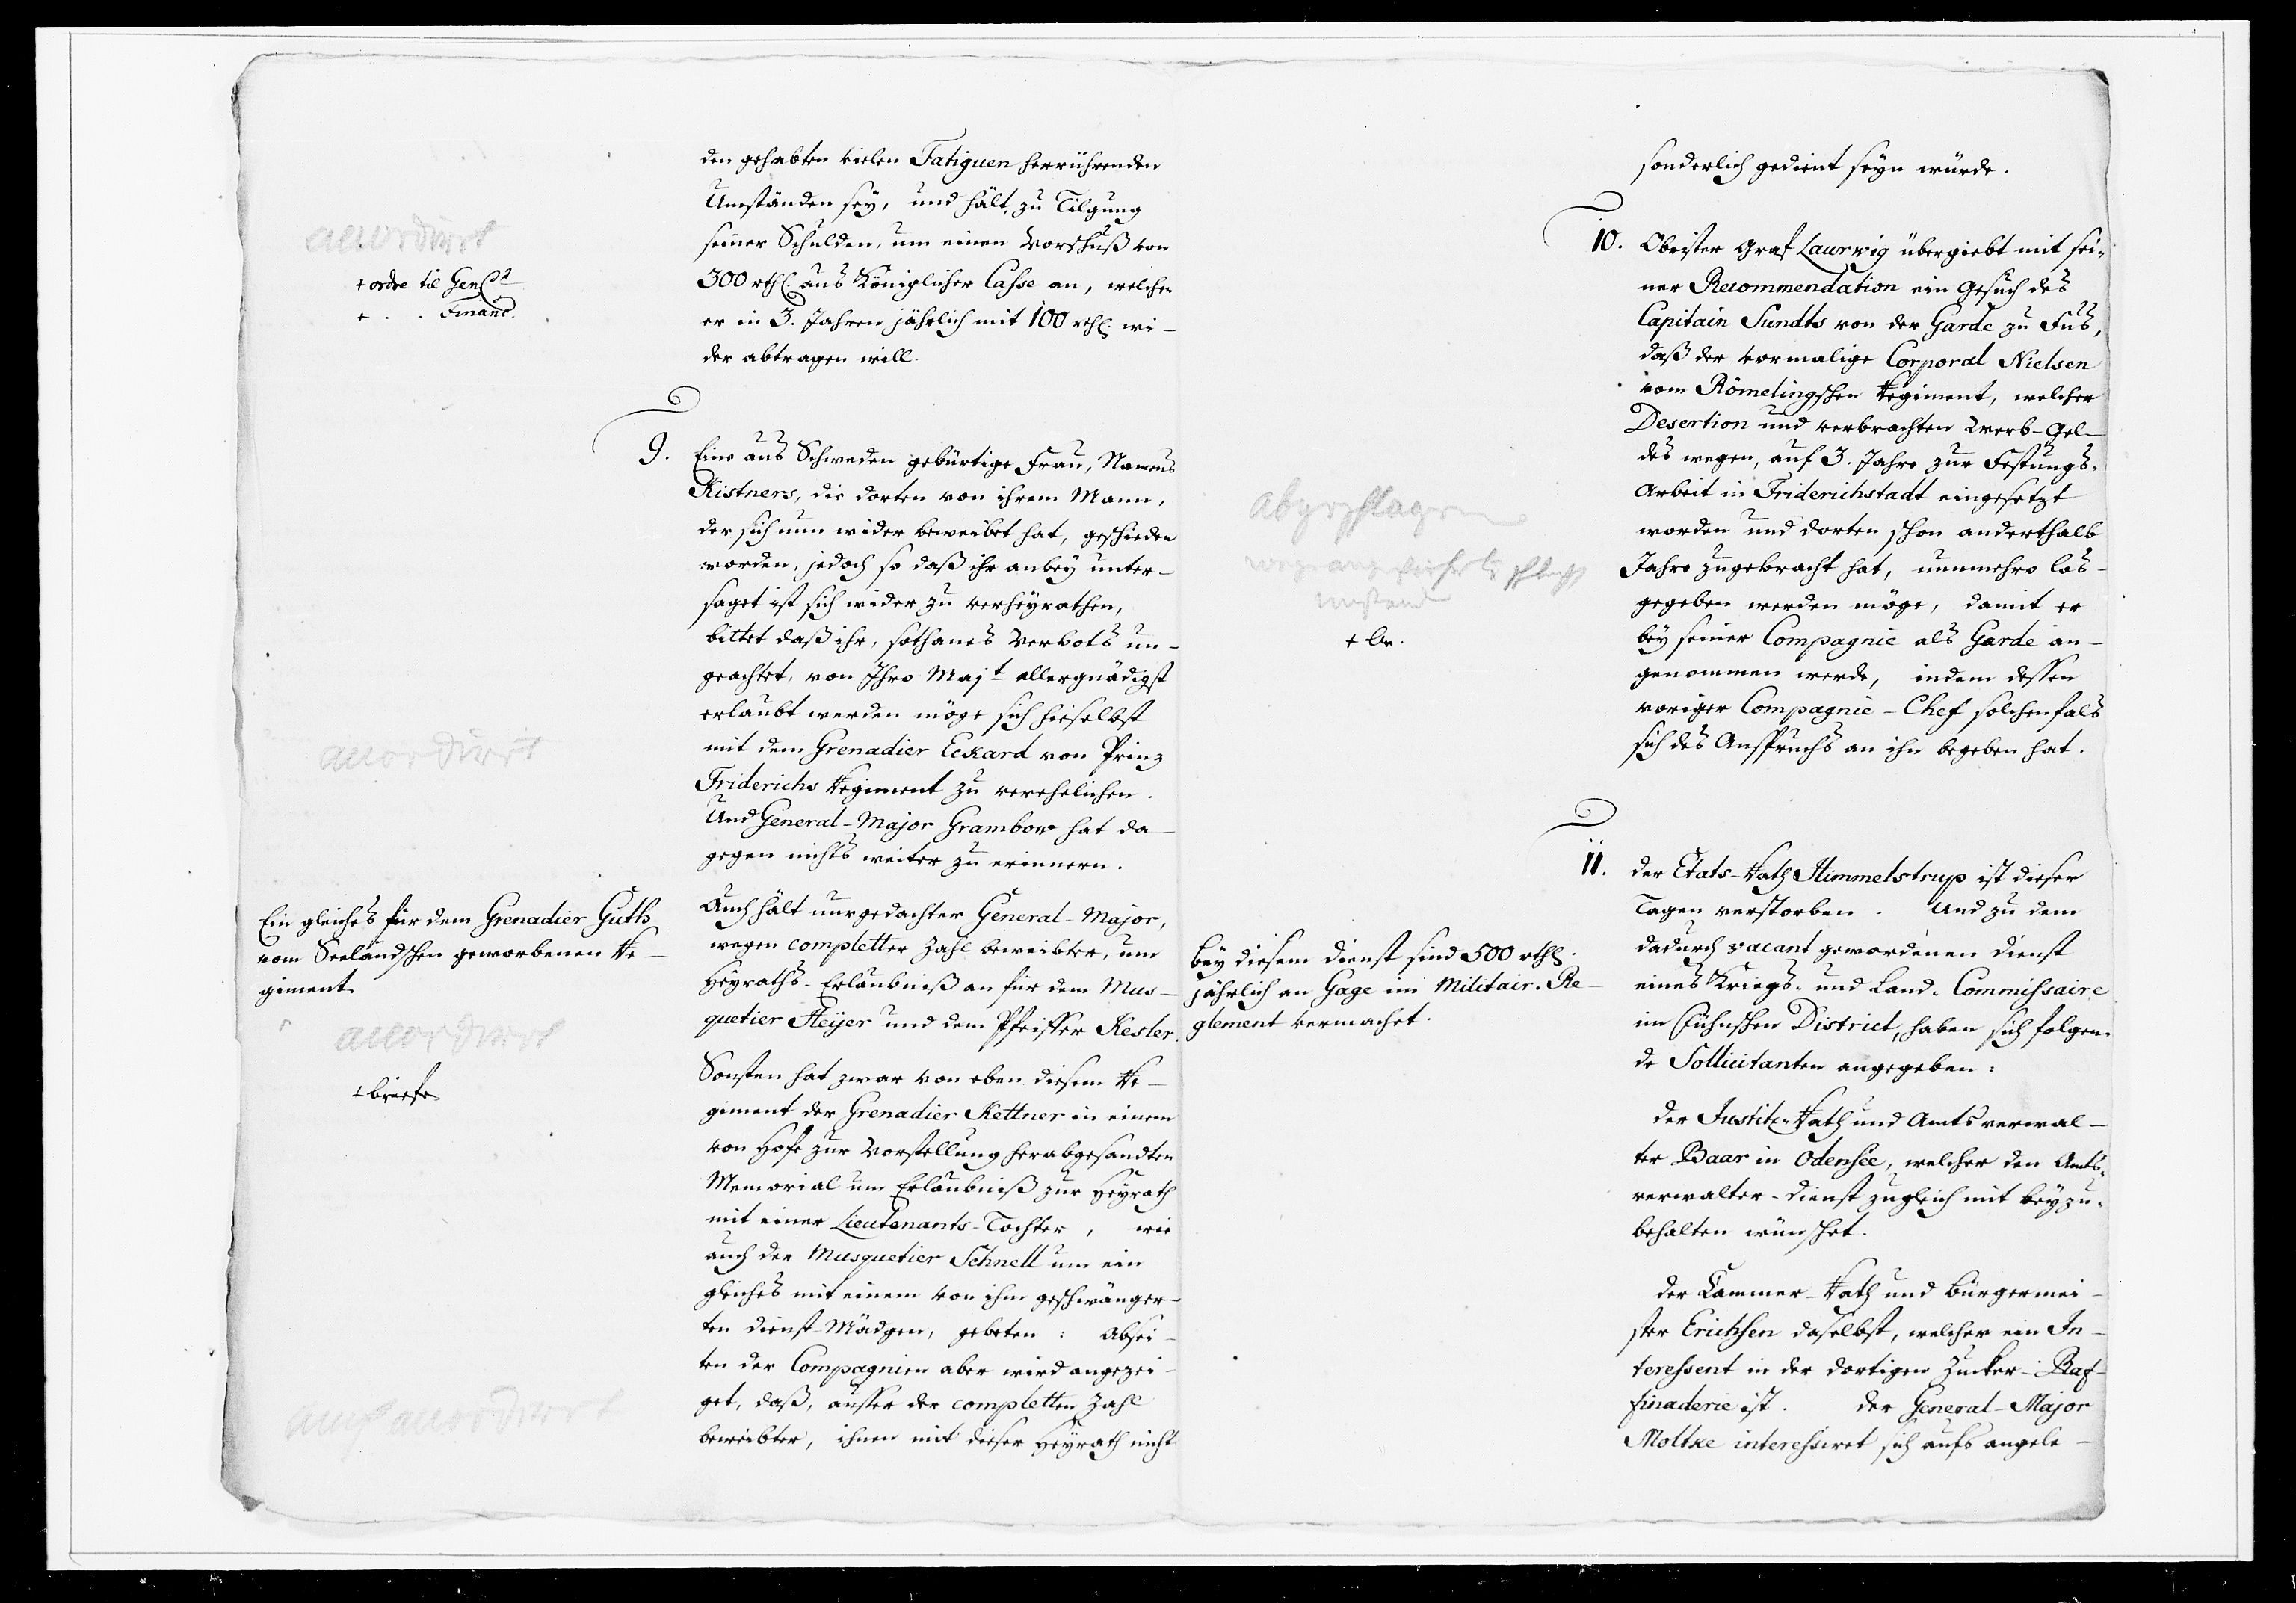 den gehabten vielen Fatiguen herrührenden
Umständen sey, und hält, zu Tilgung
seiner Schulden, um einen Vorschuß von
300 rthl. aus Königlicher Casse an, welchen
er in 3. Jahren jährlich mit 100 rthl. wi-
der abtragen will.
accordirt
+ ordre til Genl
+ . . Financ.
9. Eine aus Schweden gebürtige Frau, Namens
Kistners, die dorten von ihrem Mann,
der sich nun wider beweibet hat, geschieden
worden, jedoch so daß ihr anbey unter-
saget ist sich wider zu verheyrathen,
bittet daß ihr, sothanes Verbots un-
geachtet, von Ihro Majt allergnädigst
erlaubt werden möge sich hieselbst
mit dem Grenadier Eckard von Prinz
Friderichs Regiment zu verehelichen.
Und General-Major Grambow hat da-
gegen nichts weiter zu erinnern.
accordirt
Auch hält nurgedachter General-Major,
wegen completter Zahl beweibter, um
Heyraths-Erlaubniß an für dem Mus-
quetier Heyer und dem Pfeiffer Kesler.
Ein gleiches für dem Grenadier Guth
vom Seeländschen geworbenen Re-
giment.
accordirt
+ briefe
Sonsten hat zwar von eben diesem Re-
giment der Grenadier Kettner in einem
von Hofe zur Vorstellung herabgesandten
Memorial um Erlaubniß zur Heyrath
mit einer Lieutenants-Tochter, wie
auch der Musquetier Schnell um ein
gleiches mit einem von ihm geschwänger-
ten Dienst-Mädgen, gebeten: Absei-
ten der Compagnien aber wird angezei-
get, daß, ausser der completten Zahl
beweibter, ihnen mit dieser Heyrath nicht
auch accordirt
sonderlich gedient seyn würde.
10. Obrister Graf Laurwig übergiebt mit sei-
ner Recommendation ein Gesuch des
Capitain Sundts von der Garde zu Fus,
daß der vormalige Corporal Nielsen
vom Römelingschen Regiment, welcher
Desertion und verbrachten Werb-Gel-
des wegen, auf 3. Jahre zur Festungs-
Arbeit in Friderichstadt eingesetzt
worden und dorten schon anderthalb
Jahre zugebracht hat, nunmehro los-
gegeben werden möge, damit er
bey seiner Compagnie als Garde an-
genommen werde, indem dessen
voriger Compagnie-Chef solchenfals
sich des Anspruchs an ihn begeben hat.
abgeschlagen
+ br.
11. der Etats-Rath Himmelstrup ist dieser
Tagen verstorben. Und zu dem
dadurch vacant gewordenen Dienst
eines Kriegs- und Land-Commissaire
im Fühnschen District, haben sich folgen-
de Sollicitanten angegeben:
Bey diesem Dienst sind 500 rthl.
jährlich an Gage im Militair-Re-
glement vermachet.
der Justitz-Rath und Amtsverwal-
ter Baar in Odensee, welcher den Amts-
verwalter-Dienst zugleich mit beyzu-
behalten wünschet.
der Cammer-Rath und Bürgermei-
ster Erichsen daselbst, welcher ein In-
teressent in der dortigen Zucker-Raf-
finaderie ist. der General-Major
Moltke interessiret sich aufs angele-